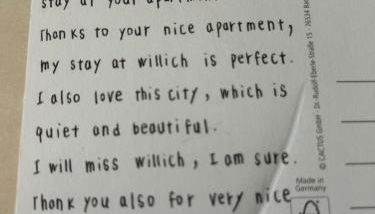 stay at your
Thanks to your nice apartment,
my stay at willich is perfect.
I also love this city, which is
quiet and beautiful.
I will miss willich, I am sure.
Thank you also for very nice
© CACTUS GmbH · Dr.-Rudolf-Eberle-Straße 15 · 76534
Made in
Germany